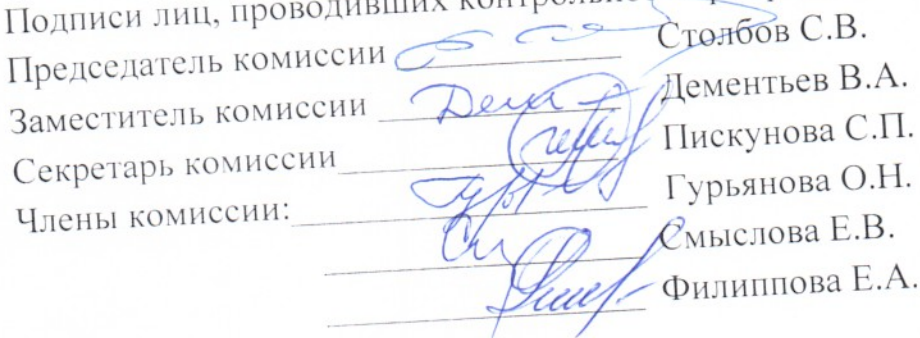 Подписи лиц, проводивших
Председатель комиссии Столбов С.В.
Заместитель комиссии Дементьев В.А.
Секретарь комиссии Пискунова С.П.
Члены комиссии: Гурьянова О.Н.
Смыслова Е.В.
Филиппова Е.А.